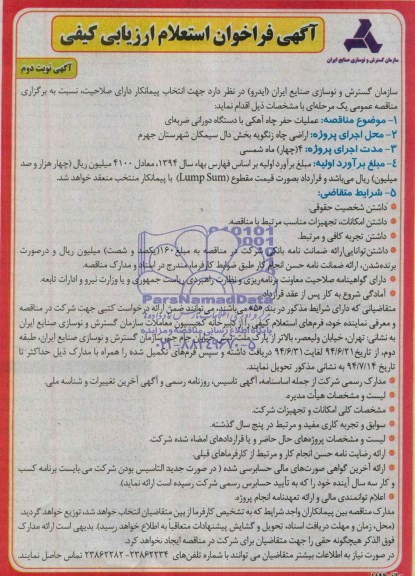 سازمان گسترش و نوسازی صنایع ایران
آگهی فراخوان استعلام ارزیابی کیفی
آگهی نوبت دوم
سازمان گسترش و نوسازی صنایع ایران (ایدرو) در نظر دارد جهت انتخاب پیمانکار دارای صلاحیت، نسبت به برگزاری
مناقصه عمومی یک مرحله‌ای با مشخصات ذیل اقدام نماید:
۱- موضوع مناقصه: عملیات حفر چاه آهکی با دستگاه دورانی ضربه‌ای
۲- محل اجرای پروژه: اراضی چاه زنگویه بخش دال سیمکان شهرستان جهرم
۳- مدت اجرای پروژه: ۴(چهار) ماه شمسی
۴- مبلغ برآورد اولیه: مبلغ برآورد اولیه بر اساس فهارس بهاء سال ۱۳۹۴، معادل ۴۱۰۰ میلیون ریال (چهار هزار و صد
میلیون) ریال می‌باشد و قرارداد بصورت قیمت مقطوع (Lump Sum) با پیمانکار منتخب منعقد خواهد شد.
۵- شرایط متقاضی:
داشتن شخصیت حقوقی.
داشتن امکانات، تجهیزات مناسب مرتبط با مناقصه.
داشتن تجربه کافی و مرتبط.
داشتن توانایی ارائه ضمانت نامه بانکی شرکت در مناقصه به مبلغ ۱۶۰(یکصد و شصت) میلیون ریال و درصورت
برنده‌شدن، ارائه ضمانت نامه حسن انجام کار طبق ضوابط کارفرما، مندرج در اسناد و مدارک مناقصه.
دارای گواهینامه صلاحیت معاونت برنامه‌ریزی و نظارت راهبردی ریاست جمهوری و یا وزارت نیرو و ادارات تابعه.
آمادگی شروع به کار پس از عقد قرارداد.
متقاضیانی که دارای شرایط مذکور در بند «۵» می‌باشند، می‌توانند ضمن ارائه درخواست کتبی جهت شرکت در مناقصه
و معرفی نماینده خود، فرم‌های استعلام کیفی را از دبیرخانه کمیسیون معاملات سازمان گسترش و نوسازی صنایع ایران
به نشانی: تهران، خیابان ولیعصر، بالاتر از پارک ملت، نبش خیابان جام جم، سازمان گسترش و نوسازی صنایع ایران، طبقه
دوم، از تاریخ ۹۴/۶/۲۱ لغایت ۹۴/۶/۳۱ دریافت داشته و سپس فرم‌های تکمیل شده را همراه با مدارک ذیل حداکثر تا
تاریخ ۹۴/۷/۱۴ به نشانی مذکور تحویل نمایند.
مدارک رسمی شرکت از جمله اساسنامه، آگهی تاسیس، روزنامه رسمی و آگهی آخرین تغییرات و شناسه ملی.
لیست و مشخصات هیأت مدیره.
مشخصات کلی امکانات و تجهیزات شرکت.
سوابق و تجربه کاری مفید و مرتبط در پنج سال گذشته.
لیست و مشخصات پروژه‌های حال حاضر و یا قراردادهای امضاء شده شرکت.
ارائه رضایت نامه حسن انجام کار و مرتبط از کارفرماهای قبلی.
ارائه آخرین گواهی صورت‌های مالی حسابرسی شده ( در صورت جدید التاسیس بودن شرکت می بایست برنامه کسب
و کار سه سال آینده خود را که به تأیید حسابرس رسمی شرکت رسیده است ارائه نماید).
اعلام توانمندی مالی و ارائه تعهدنامه انجام پروژه.
مدارک مناقصه بین پیمانکاران واجد شرایط که به تشخیص کارفرما از بین متقاضیان انتخاب خواهد شد، توزیع خواهد گردید.
(محل، زمان و مهلت دریافت اسناد، تحویل و گشایش پیشنهادات متعاقبا به اطلاع خواهد رسید). بدیهی است ارائه مدارک
فوق الذکر هیچگونه حقی را جهت متقاضیان برای شرکت در مناقصه ایجاد نخواهد کرد.
در صورت نیاز به اطلاعات بیشتر متقاضیان می توانند با شماره تلفن‌های ۲۳۸۶۲۲۳۴- ۲۳۸۶۲۲۸۲ تماس حاصل نمایند.
ParsNamadData
پایگاه اطلاع رسانی مناقصه و مزایده
۰۲۱-۸۸۳۴۹۶۷۰-۵